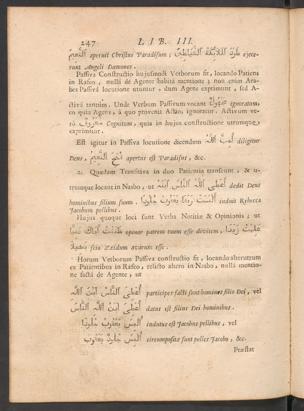 247 L I B. III.
النَّعِيمَ aperuit Christus Paradisum ; طَرَدَتِ المَلَائِكَةُ الشَّيَاطِينَ ejece-
runt Angeli Dæmones.
Passiva Constructio hujusmodi Verborum fit, locando Patiens
in Rafeo, nullâ de Agente habitâ mentione ; non enim Ara-
bes Passivâ locutione utuntur, dum Agens exprimunt, sed A-
ctivâ tantùm. Unde Verbum Passivum vocant مَجْهُولًا ignoratum,
eo quia Agens, à quo provenit Actio, ignoratur. Activum ve-
rò مَعْرُوفًا Cognitum, quia in hujus constructione utrumque
exprimunt.
Est igitur in Passiva locutione dicendum أُحِبَّ اللّٰهُ diligitur
Deus, فُتِحَ النَّعِيمُ apertus est Paradisus, &c.
2. Quædam Transitiva in duo Patientia transeunt, & u-
trumque locant in Nasbo, ut أَعْطَى اللّٰهُ النَّاسَ ابْنَهُ dedit Deus
hominibus filium suum. أَلْبَسَتْ رِفْقَا يَعْقُوبَ جُلُودًا induit Rebecca
Jacobum pellibus.
Hujus quoque loci sunt Verba Notitiæ & Opinionis ; ut
ظَنَنْتُ أَبَاكَ غَنِيًّا opinor patrem tuum esse divitem, عَلِمْتُ زَيْدًا
بَخِيلًا scio Zeidum avarum esse.
Horum Verborum Passiva constructio fit, locando alterutrum
ex Patientibus in Rafeo, relicto altero in Nasbo, nullâ mentio-
ne factâ de Agente, ut
أُعْطِيَ النَّاسُ ابْنَ اللّٰهِ participes facti sunt homines filio Dei, vel
أُعْطِيَ النَّاسَ ابْنُ اللّٰهِ datus est filius Dei hominibus.
أُلْبِسَ يَعْقُوبُ جُلُودًا indutus est Jacobus pellibus, vel
أُلْبِسَ جُلُودٌ يَعْقُوبَ circumpositæ sunt pelles Jacobo, &c.
Præstat